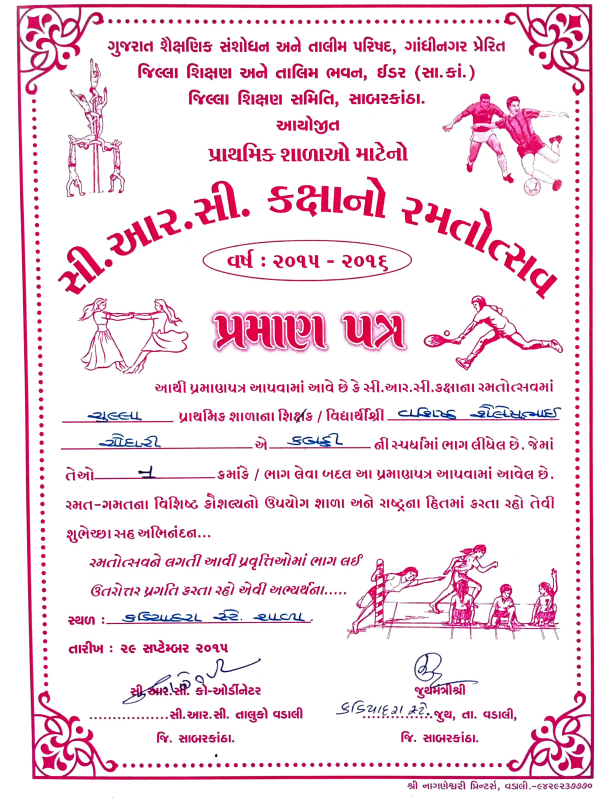 ગુજરાત શૈક્ષણિક સંશોધન અને તાલીમ પરિષદ, ગાંધીનગર પ્રેરિત
જિલ્લા શિક્ષણ અને તાલિમ ભવન, ઈડર (સા.કાં.)
જિલ્લા શિક્ષણ સમિતિ, સાબરકાંઠા.
આયોજીત
પ્રાથમિક શાળાઓ માટેનો
સી.આર.સી. કક્ષાનો રમતોત્સવ
વર્ષ : ૨૦૧૫ - ૨૦૧૬
પ્રમાણ પત્ર
આથી પ્રમાણપત્ર આપવામાં આવે છે કે સી.આર.સી.કક્ષાના રમતોત્સવમાં
ચુલ્લા પ્રાથમિક શાળાના શિક્ષક / વિદ્યાર્થીશ્રી વાશિષ્ઠ શૈલેષભાઈ
ચૌધરી એ કબડ્ડી ની સ્પર્ધામાં ભાગ લીધેલ છે. જેમાં
તેઓ ૧ ક્રમાંકે / ભાગ લેવા બદલ આ પ્રમાણપત્ર આપવામાં આવેલ છે.
રમત-ગમતના વિશિષ્ટ કૌશલ્યનો ઉપયોગ શાળા અને રાષ્ટ્રના હિતમાં કરતા રહો તેવી
શુભેચ્છા સહ અભિનંદન...
રમતોત્સવને લગતી આવી પ્રવૃત્તિઓમાં ભાગ લઈ
ઉતરોત્તર પ્રગતિ કરતા રહો એવી અભ્યર્થના.....
સ્થળ : કડિયાદરા સ્ટે. શાળા.
તારીખ : ૨૯ સપ્ટેમ્બર ૨૦૧૫
સી.આર.સી. કો-ઓર્ડીનેટર
.................સી.આર.સી. તાલુકો વડાલી
જિ. સાબરકાંઠા.
જુથમંત્રીશ્રી
કડિયાદરા સ્ટે. જુથ, તા. વડાલી,
જિ. સાબરકાંઠા.
શ્રી નાગણેશ્વરી પ્રિન્ટર્સ, વડાલી.-૯૪૨૯૨૩૭૭૭૦